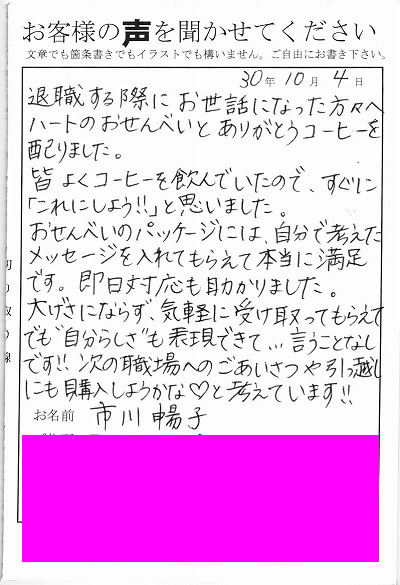 お客様の声を聞かせてください
文章でも箇条書きでもイラストでも構いません。ご自由にお書き下さい。
30年 10月 4日
退職する際に お世話になった方々へ
ハートのおせんべいと ありがとうコーヒーを
配りました。
皆 よくコーヒーを飲んでいたので、すぐに
「これにしよう!!」と思いました。
おせんべいのパッケージには、自分で考えた
メッセージを入れてもらえて本当に満足
です。即日対応も助かりました。
大げさにならず、気軽に受け取ってもらえて
でも"自分らしさ"も表現できて…言うことなし
です!! 次の職場へのごあいさつや引っ越し
にも購入しようかな♡と考えています!!
お名前 市川 暢子